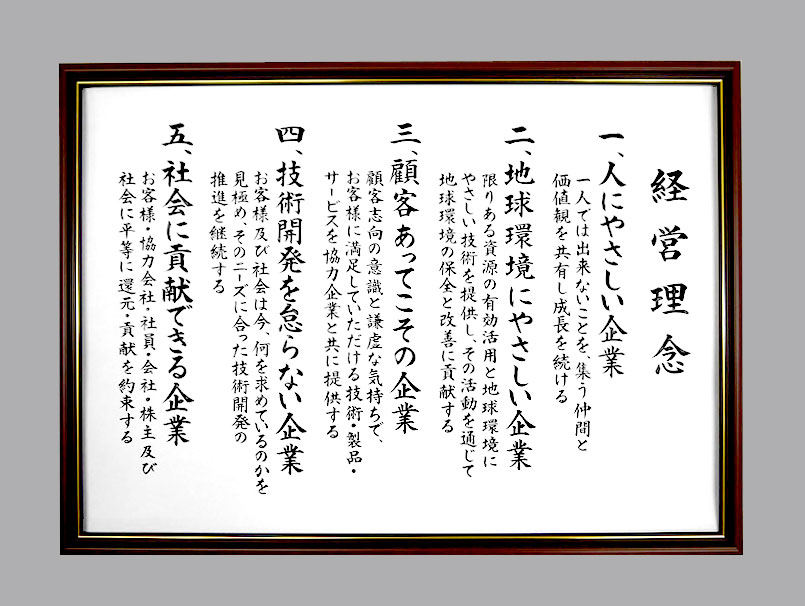 経営理念
一、人にやさしい企業
一人では出来ないことを、集う仲間と
価値観を共有し成長を続ける
二、地球環境にやさしい企業
限りある資源の有効活用と地球環境に
やさしい技術を提供し、その活動を通じて
地球環境の保全と改善に貢献する
三、顧客あってこその企業
顧客志向の意識と謙虚な気持ちで、
お客様に満足していただける技術・製品・
サービスを協力企業と共に提供する
四、技術開発を怠らない企業
お客様及び社会は今、何を求めているのかを
見極め、そのニーズに合った技術開発の
推進を継続する
五、社会に貢献できる企業
お客様・協力会社・社員・会社・株主及び
社会に平等に還元・貢献を約束する